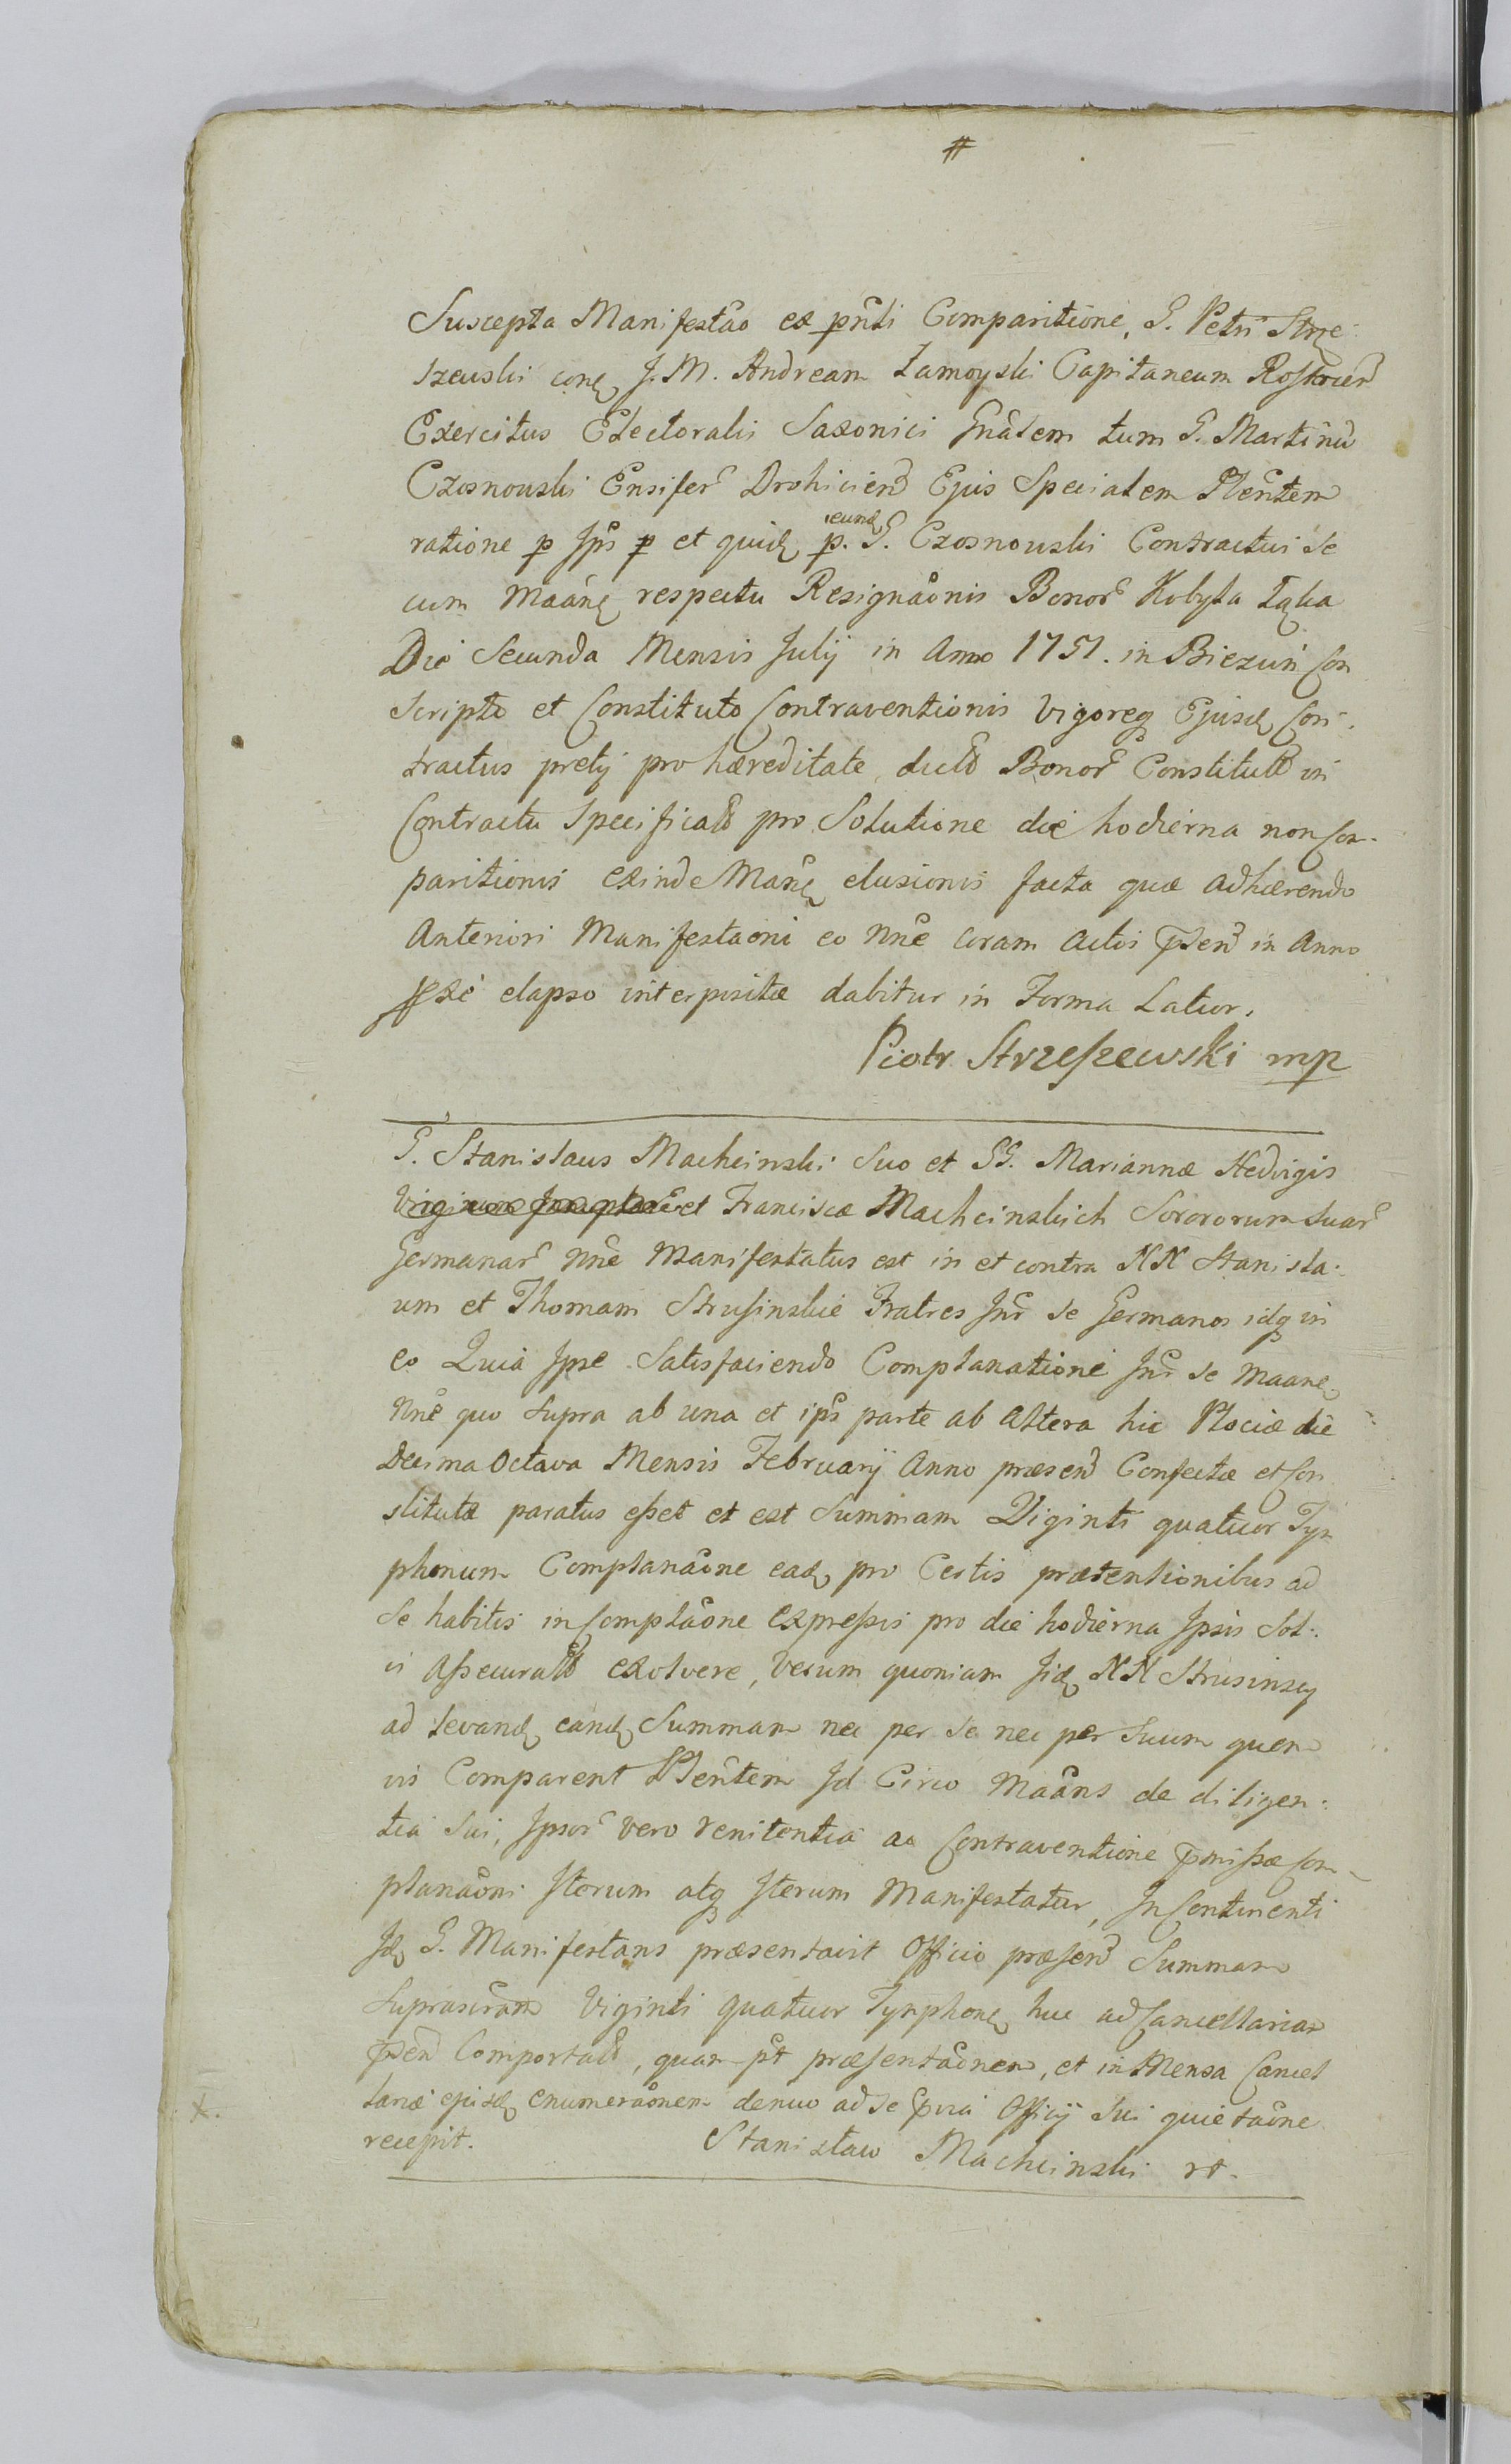 #
Suscepta Manifestao ex pnti Comparitione, G. Petri Strze
szewski conq J. M. Andream Zamoyski Capitaneum Rostocien
Exercitus Electoralis Saxonici Gnalem tum G. Martinu
Czosnowski Ensifer Drohicien Ejus Specialem Plentem
ratione p Ips p et quid p. eund G. Czosnowski Contractui se
cum Maane respectu Resignaonis Bonor Kobyla Łąka
Die Secunda Mensis Julij in Anno 1751. in Biezuń Con
scripto et Constituto Contraventionis Vigoreq Ejusd Con-
tractus pretij pro hæreditate dicto Bonor Constituto in
Contractu Specificato pro Solutione die hodierna non Com-
paritionis exinde Mane elusionis facta quæ adhærendo
Anteriori Manifestaoni eo Nne coram Actis psen in Anno
pxe elapso interpositæ dabitur in Forma Latior.
Piotr Strzeszewski mp
G. Stanislaus Machcinski Suo et GG. Mariannæ Hedvigis
et Franciscæ Machcinskich Sorororum Suar
Germanar Nne Manifestatus est in et contra NN Stanisla-
um et Thomam Strusinskie Fratres Int se Germanos idq in
eo Quia Ipse Satisfaciendo Complanationi Int se Maane
Nne quo supra ab una et ips parte ab Altera hic Plociæ die
Decima Octava Mensis Februarij Anno præsen Confectæ et Con
stitutæ paratus esset et est Summam Viginti quatuor Tyn
phonum Complanaone ead pro Certis prætensionibus ad
Se habitis in Complaone Expressis pro die hodierna Ipsis Sol-
vi Assecurato exolvere, Verum quoniam Iid NN Strusinscy
ad levand eand Summam nec per se nec per Suum quem
vis Comparent Plentem Id Circo Maans de diligen-
tia Sui, Ipsor vero renitentia ac Contraventione pmissæ Com-
planaoni Iterum atq Iterum Manifestatur, In Continenti
Id G. Manifestans præsentavit Officio præsen Summam
Suprascram Viginti quatuor Tynphone huc ad Cancellariam
psen Comportato, quam pt præsentaonem, et in Mensa Cancel
lariæ ejusd enumeraonem denuo ad se pvia Officij Sui quietaone
recepit. Stanisław Machcinski rt.
X.